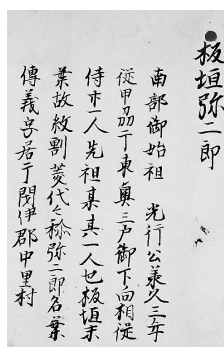 板垣弥二郎
南部御始祖　光行公承久三年
従甲州于東奥三戸御下向相従
侍廿二人先祖某其一人也板垣末
葉故紋割菱代々称弥二郎名葉
傳義安居于閉伊郡中里村